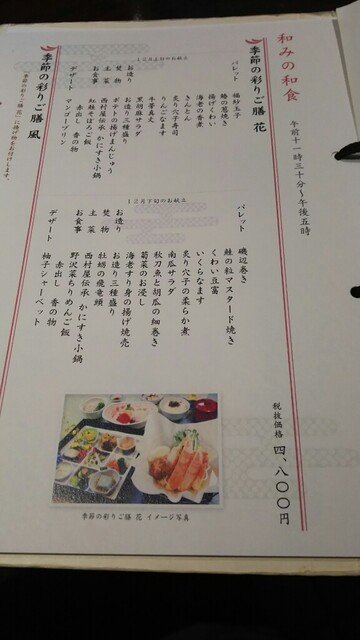 和みの和食
午前十一時三十分〜午後五時
季節の彩りご膳 花
税抜価格 四、八〇〇円
12月上旬のお献立
パレット 福紗玉子
鰆の葱焼き
揚げくわい
海老の香煮
きんとん
炙り穴子寿司
りんごなます
牛蒡真丈
黒胡麻サラダ
お造り お造り三種盛り
焚物 ポテトの揚げまんじゅう
主菜 西村屋伝承 かにすき小鍋
お食事 紅鮭そぼろご飯
赤出し 香の物
デザート マンゴープリン
12月下旬のお献立
パレット 磯辺巻き
鮭の粒マスタード焼き
くわい豆富
いくらなます
炙り穴子の柔らか煮
南瓜サラダ
秋刀魚と胡瓜の細巻き
菊菜のお浸し
海老すり身の揚げ焼売
お造り お造り三種盛り
焚物 牡蠣の飛竜頭
主菜 西村屋伝承 かにすき小鍋
お食事 野沢菜ちりめんご飯
赤出し 香の物
デザート 柚子シャーベット
季節の彩りご膳 風
「季節の彩りご膳 花」に揚げ物をお付けします。
季節の彩りご膳 花 イメージ写真